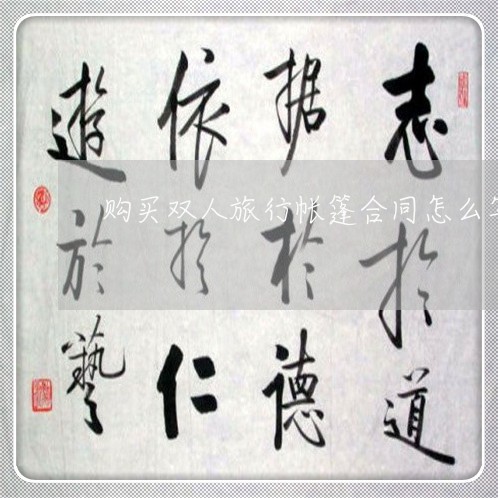 志於道
据於德
依於仁
遊於藝
购买双人旅行帐篷合同怎么